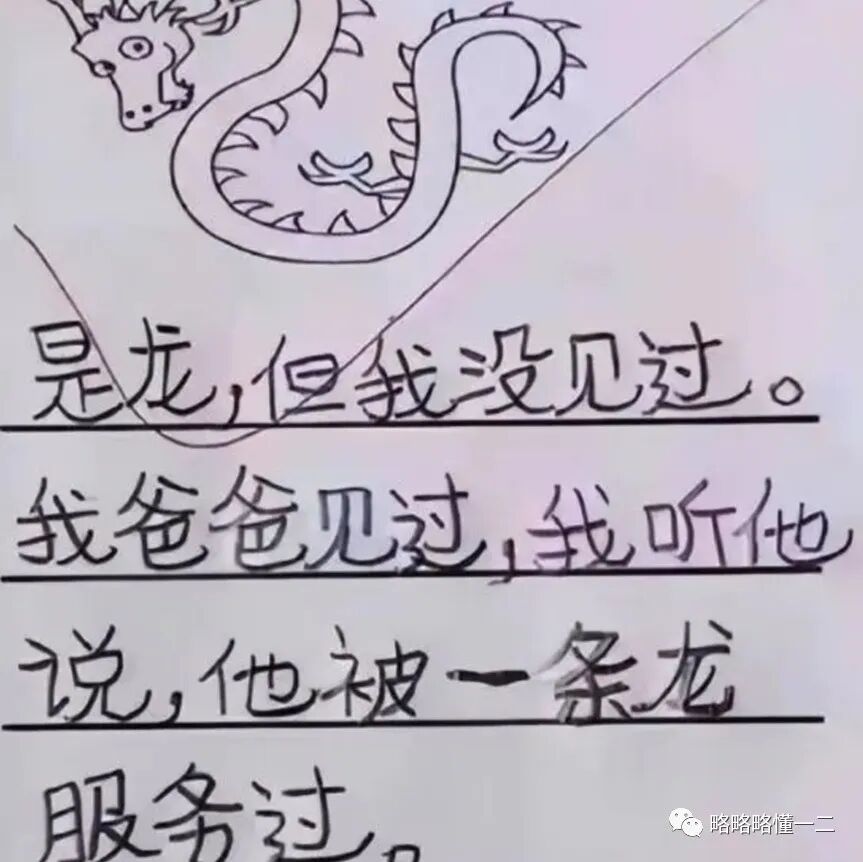 是龙,但我没见过。
我爸爸见过,我听他
说,他被一条龙
服务过。
略略略懂一二